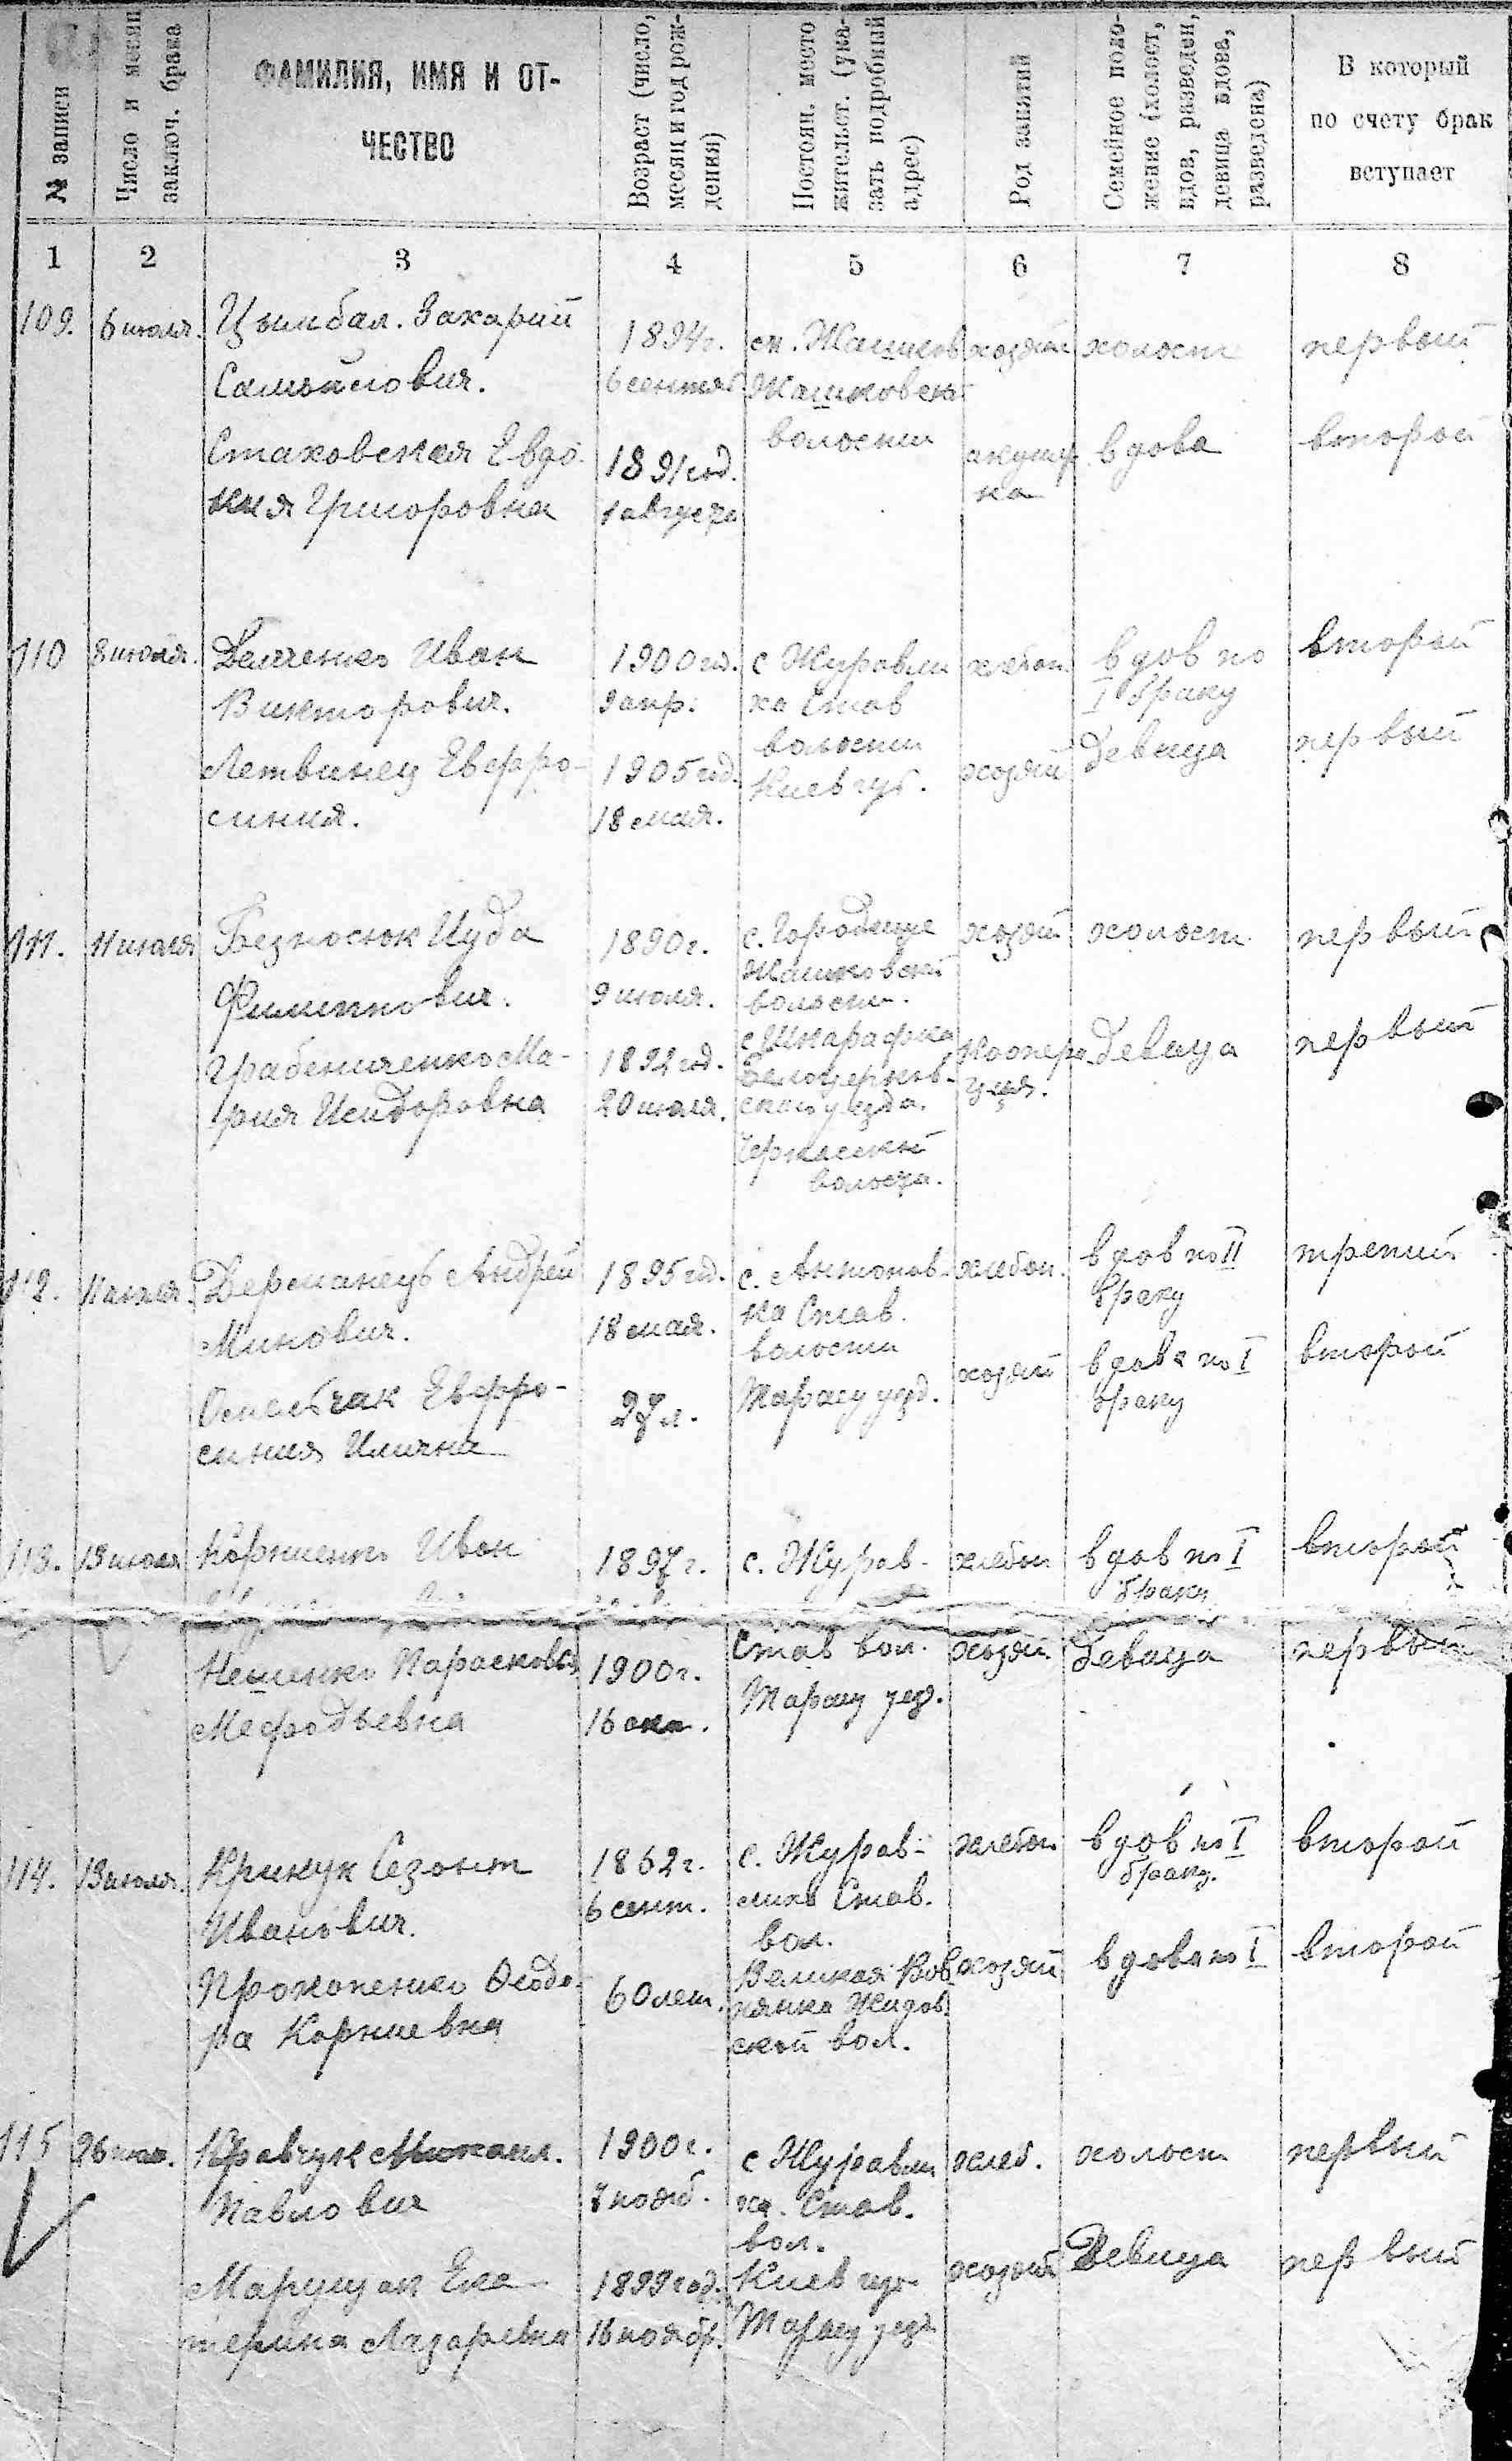 № записи
Число и месяц
заключ. брака
ФАМИЛИЯ, ИМЯ И ОТ-
ЧЕСТВО
Возраст (число,
месяц и год рож-
дения)
Постоян. место
жительст. (ука-
зать подробный
адрес)
Род занятий
Семейное поло-
жение (холост,
вдов, разведен,
девица вдова,
разведена)
В который
по счету брак
вступает
1 2 3 4 5 6 7 8
109. 6 июля. Цымбал. Захарий
Самойлович.
1894г.
6 сентяб.
м. Жашков
Жашковск
волости
хозяй холост первый
Стаховская Евдо-
кия Григоровна
1891 год.
1 августа
акушер
ка
вдова второй
110 8 июля. Иван
Викторович.
1900 год.
9 апр.
с Журавли
ха Став
волости
Киев губ.
хлебоп. вдов по
I браку
второй
Летвинец Евфро-
синия.
1905 год.
18 мая.
хозяй девица первый
111. 11 июля Безносюк Иуда
Филиппович.
1890г.
9 июля.
с. Городище
Жашковской
волости.
хозяй холост первый
Грабениченко Ма-
рия Исидоровна
1892 год.
20 июля.
с. Шкарафка
Белоцерков-
ского уезда.
волости.
коопера
ция.
девица первый
112. 11 июля. Дерманець Андрей
Минович.
1895 год.
18 мая.
с. Антонов-
ка Став.
волости
Таращ уезд.
хлебоп. вдов по II
браку
третий
Евфро-
синия Илична
27 л.
хозяй вдова по I
браку
второй
113. 13 июля Корниенко Иван
1897 г.
с. Журав-
хлебоп вдов по I
браку
второй
Нешенко Парасковья
Мефодьевна
1900г.
16 окт.
Став вол.
Таращ уезд.
хозяй девица первый
114. 13 июля. Крикун Созонт
Иванович.
1862г.
6 сент.
с. Журав-
лиха Став.
вол.
хлебоп вдов по I
браку.
второй
Прокопенко Феодо-
ра Корниевна
60 лет.
Великая Вов
нянка Жидов
ской вол.
хозяй вдова по I второй
115 26 июл. Кравчук Михаил.
Павлович
1900г.
7 нояб.
с Журавли
ха. Став.
вол.
хлеб. холост первый
Марущак Ека-
терина Лазаревна
1899 год.
16 ноябр.
Киев губ
Таращ уезд
хозяй девица первый